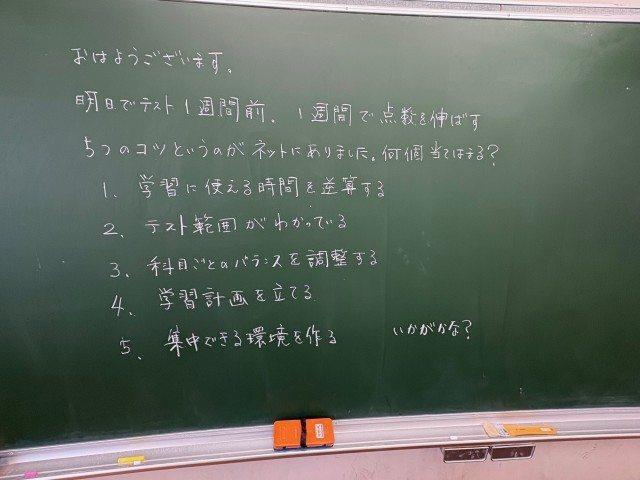 おはようございます。
明日でテスト1週間前。1週間で点数を伸ばす
5つのコツというのがネットにありました。何個当てはまる?
1. 学習に使える時間を逆算する
2. テスト範囲がわかっている
3. 科目ごとのバランスを調整する
4. 学習計画を立てる
5. 集中できる環境を作る いかがかな?